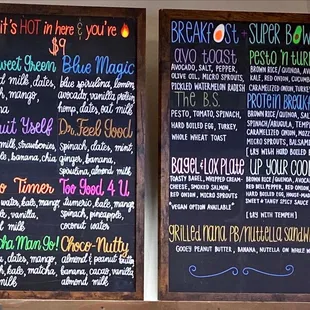 it's HOT in here & you're
$9
weet Green
milk, dates,
mango,
Blue Magic
blue spirulina, lemon,
avocado, vanilla protein
hemp, dates, oat milk
uit Yself
milk, strawberries,
banana, chia
Dr. Feel Good
Spinach, dates, mint,
ginger, banana,
spirulina, almond milk
o Timer
water, kale, mango
vanilla,
milk
Too Good 4 U
turmeric, kale, mango
spinach, pineapple,
coconut water
cha Man Go!
dates, mango,
kale, matcha
milk
Choco-Nutty
almond & peanut butter
banana, cacao, vanilla
almond milk
BREAKFAST + SUPER BOW
avo toast
AVOCADO, SALT, PEPPER,
OLIVE OIL, MICRO SPROUTS,
PICKLED WATERMELON RADISH
The B.S.
PESTO, TOMATO, SPINACH,
HARD BOILED EGG, TURKEY,
WHOLE WHEAT TOAST
BAGEL + LOX PLATE
TOASTY BAGEL, WHIPPED CREAM-
CHEESE, SMOKED SALMON,
RED ONION, MICRO SPROUTS
*VEGAN OPTION AVAILABLE*
PESTO 'N TURK
BROWN RICE/QUINOA, AVO
KALE, RED ONION, CUCUMB
CARAMELIZED ONION, TURKEY
PROTEIN BREAKF
BROWN RICE/QUINOA,
SPINACH/ARUGULA,
CARAMELIZED ONION,
MICRO SPROUTS, BALSAMI
UP YOUR COOL
BROWN RICE/QUINOA, AVO
RED BELL PEPPER, RED ONION,
HARD BOILED EGG,
SWEET & TANGY SPICY SAUCE
(LRS WITH TEMPEH)
GRILLED NANA PB/NUTTELLA SANDW
GOOEY PEANUT BUTTER, BANANA, NUTELLA ON WHOLE